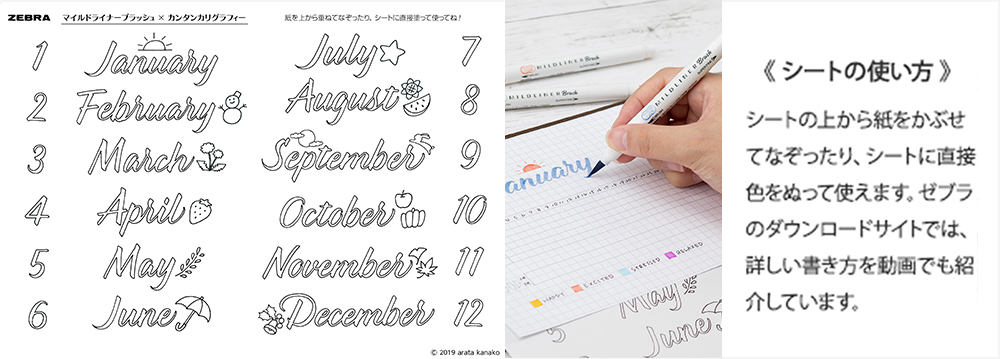 ZEBRA マイルドライナーブラッシュ × カンタンカリグラフィー
紙を上から重ねてなぞったり、シートに直接塗って使ってね!
1 January
2 February
3 March
4 April
5 May
6 June
July 7
August 8
September 9
October 10
November 11
December 12
© 2019 arata kanako
MILDLINER Brush
MILDLINER Brush
MILDLINER Brush
anuary
May
June
《 シートの使い方 》
シートの上から紙をかぶせ
てなぞったり、シートに直接
色をぬって使えます。ゼブラ
のダウンロードサイトでは、
詳しい書き方を動画でも紹
介しています。